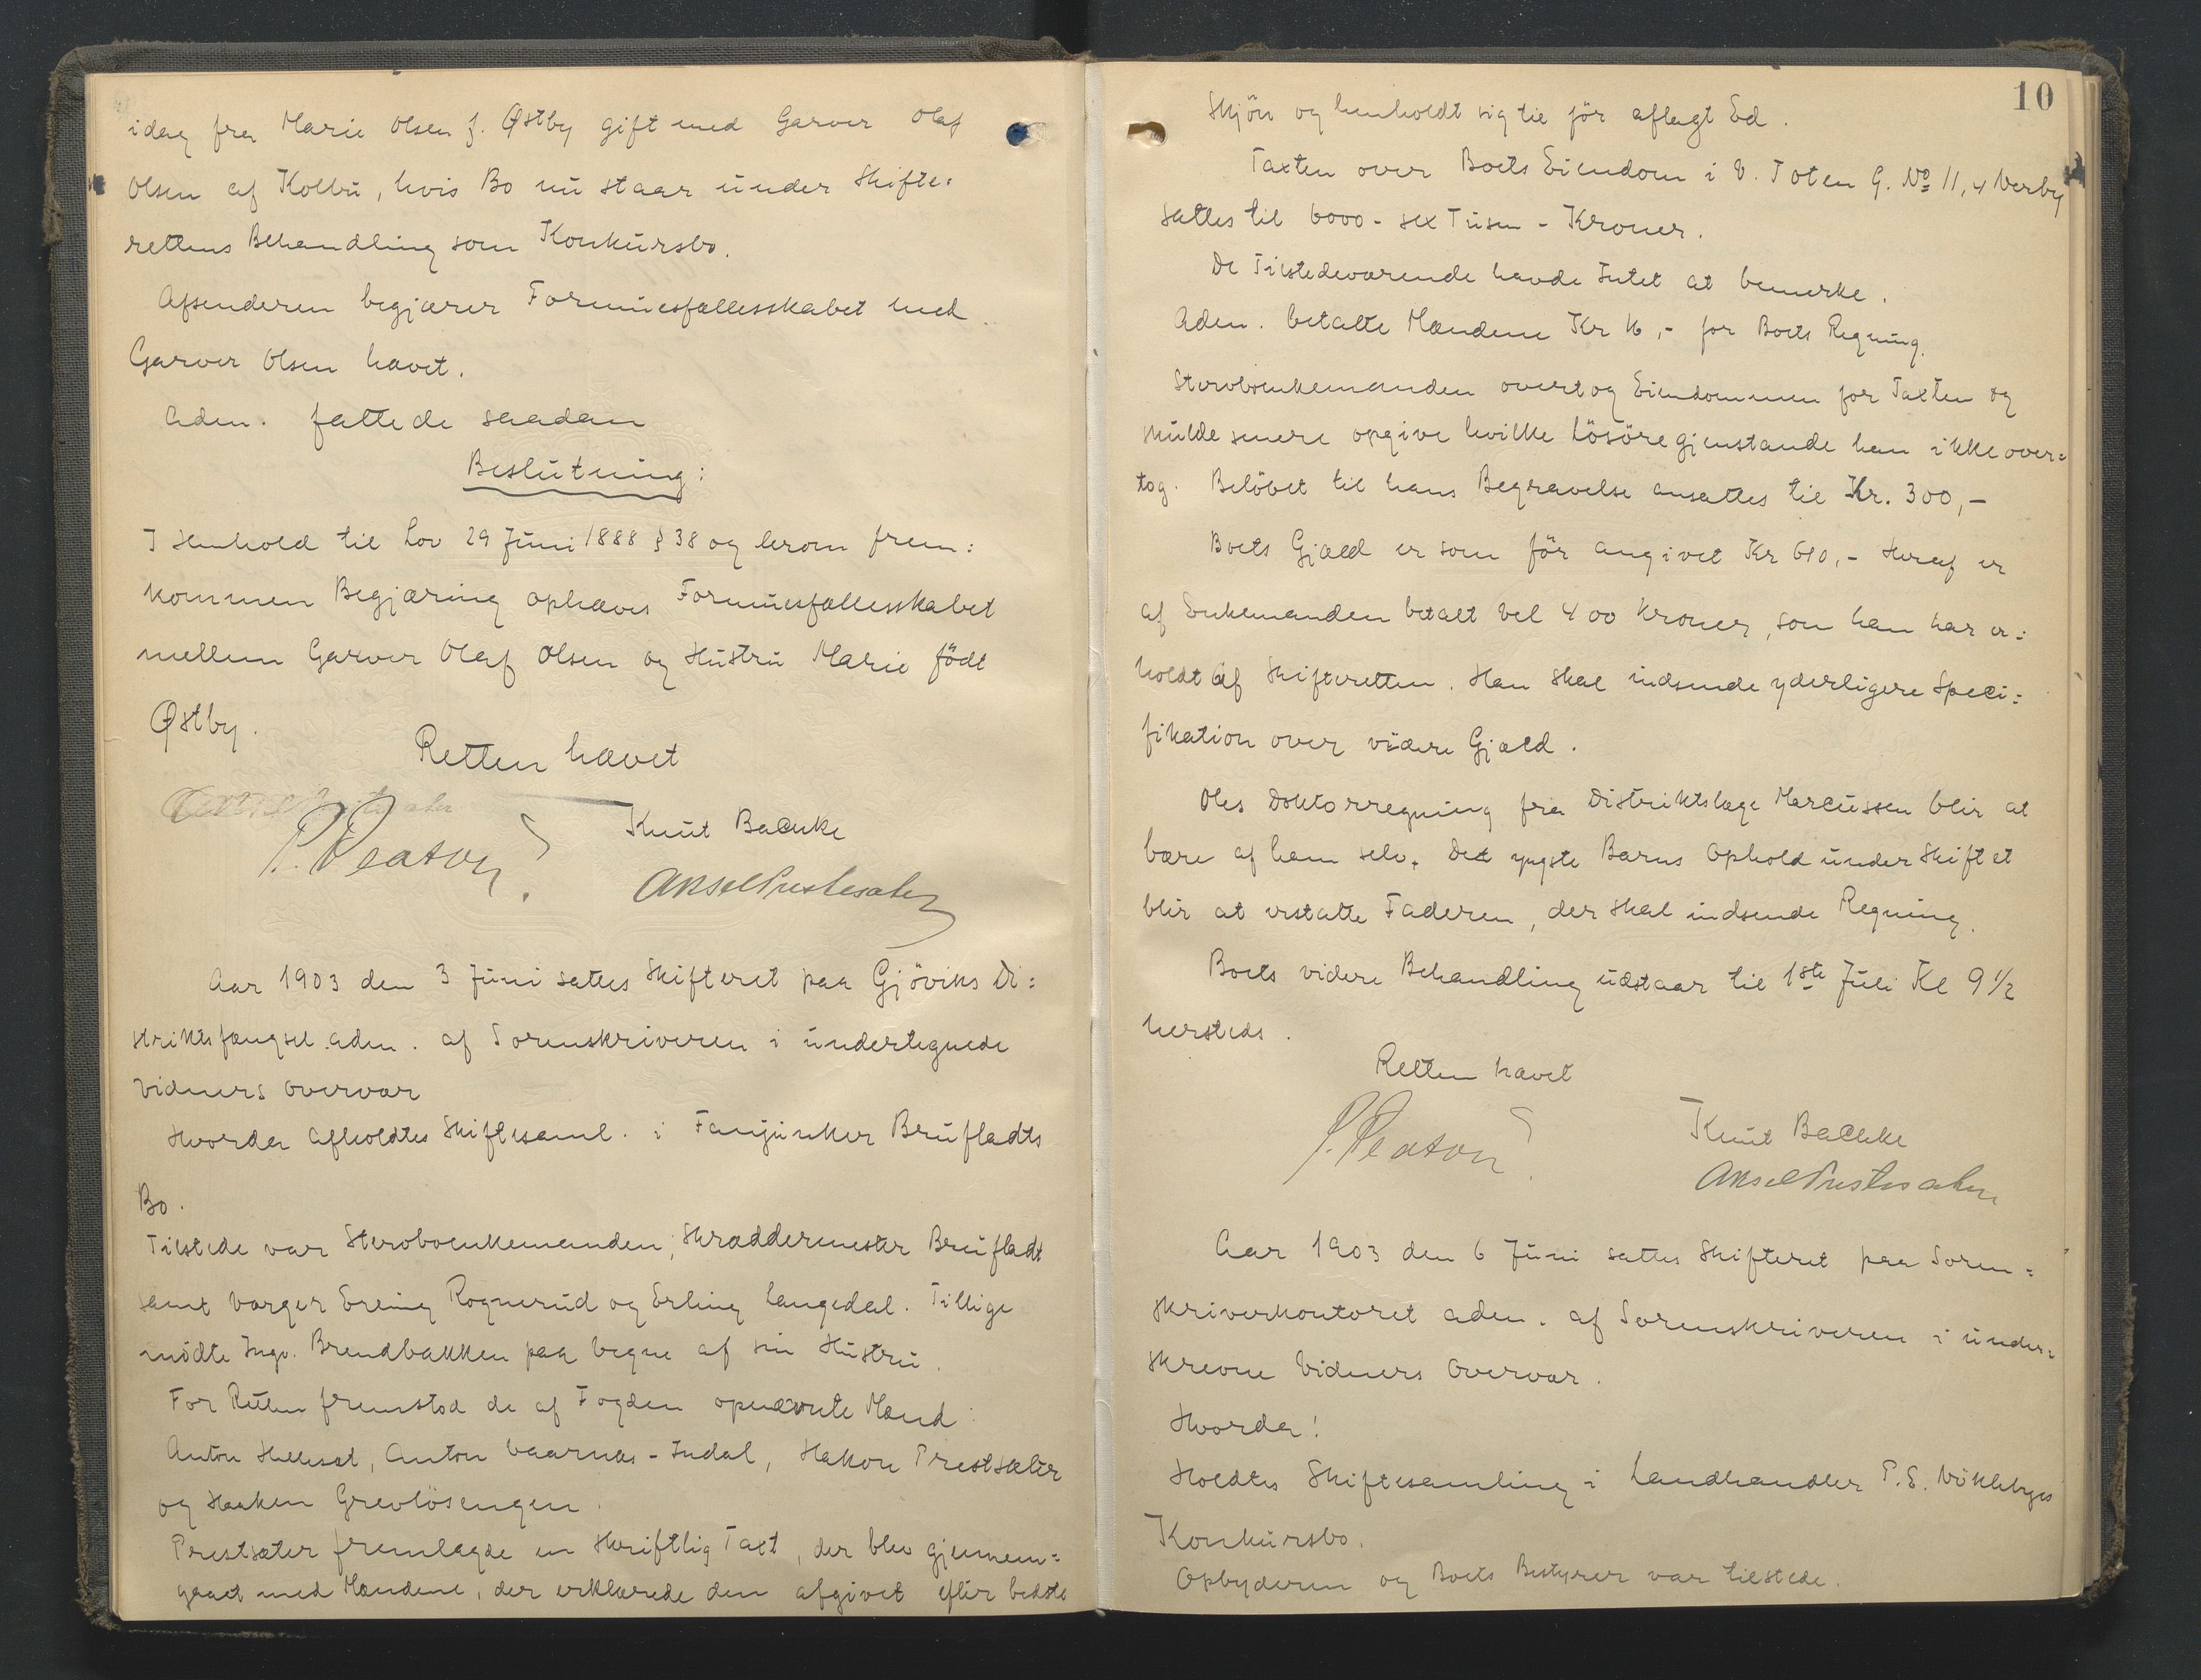 idag fra Marie Olsen f. Østby gift med Garver Olaf
Olsen af Kolbu, hvis Bo nu staar under Skifte=
rettens Behandling som Konkursbo.
Afsenderen begjærer Formuesfællesskabet med
Garver Olsen hævet.
Adm. fattede saadan
Beslutning:
I Henhold til Lov 29 Juni 1888 § 38 og herom frem=
kommen Begjæring ophæves Formuesfællesskabet
mellem Garver Olaf Olsen og Hustru Marie født
Østby.
Retten hævet
Knut Bachke
Aar 1903 den 3 Juni sattes Skifteret paa Gjøviks Di=
striktsfængsel adm. af Sorenskriveren i undertegnede
Vidners Overvær
Hvorda afholdtes Skiftesaml. i Fanejunker Brufladts
Bo.
Tilstede var Stervboenkemanden, Skræddermester Brufladt
samt Værger Erling Rognerud og Erling Langedal. Tillige
mødte Ingv. Brendbakken paa vegne af sin Hustru.
For Retten fremstod de af Fogden opnævnte Mænd:
Anton Hellesat, Anton Vaarnæs-Indal, Hakon Prestsæter
og Haaken Grevløsengen.
Prestsæter fremlagde en skriftlig Taxt, der blev gjennem=
gaaet med Mændene, der erklærede den afgivet efter bedste
10
Skjøn og henholdt sig til før aflagt Ed.
Taxten over Boets Eiendom i V. Toten G. No 11,4 Verby
sattes til 6000 - sex Tusen - Kroner.
De Tilstedeværende havde Intet at bemerke.
Adm. betalte Mændene Kr 16,- for Boets Regning.
Stervboenkemanden overtog Eiendommen for Taxten og
skulde senere opgive hvilke Løsøregjenstande han ikke over=
tog. Beløbet til hans Begravelse ansattes til Kr. 300,-
Boets Gjæld er som før angivet Kr 610,- Heraf er
af Enkemanden betalt vel 400 Kroner, som han har er=
holdt af Skifteretten. Han skal indsende yderligere Speci=
fikation over videre Gjæld.
Oles Doktorregning fra Distriktslæge Marcussen blir at
bære af ham selv. Det yngste Barns Ophold under Skiftet
blir at erstatte Faderen, der skal indsende Regning.
Boets videre Behandling udstaar til 1ste Juli Kl 9 1/2
hersteds.
Retten hævet
Knut Bachke
Aar 1903 den 6 Juni sattes Skifteret paa Soren=
skriverkontoret adm. af Sorenskriveren i under=
skrevne Vidners Overvær.
Hvorda!
Holdtes Skiftesamling i Landhandler P. E. Viklebyes
Konkursbo.
Opbyderen og Boets Bestyrer var tilstede.